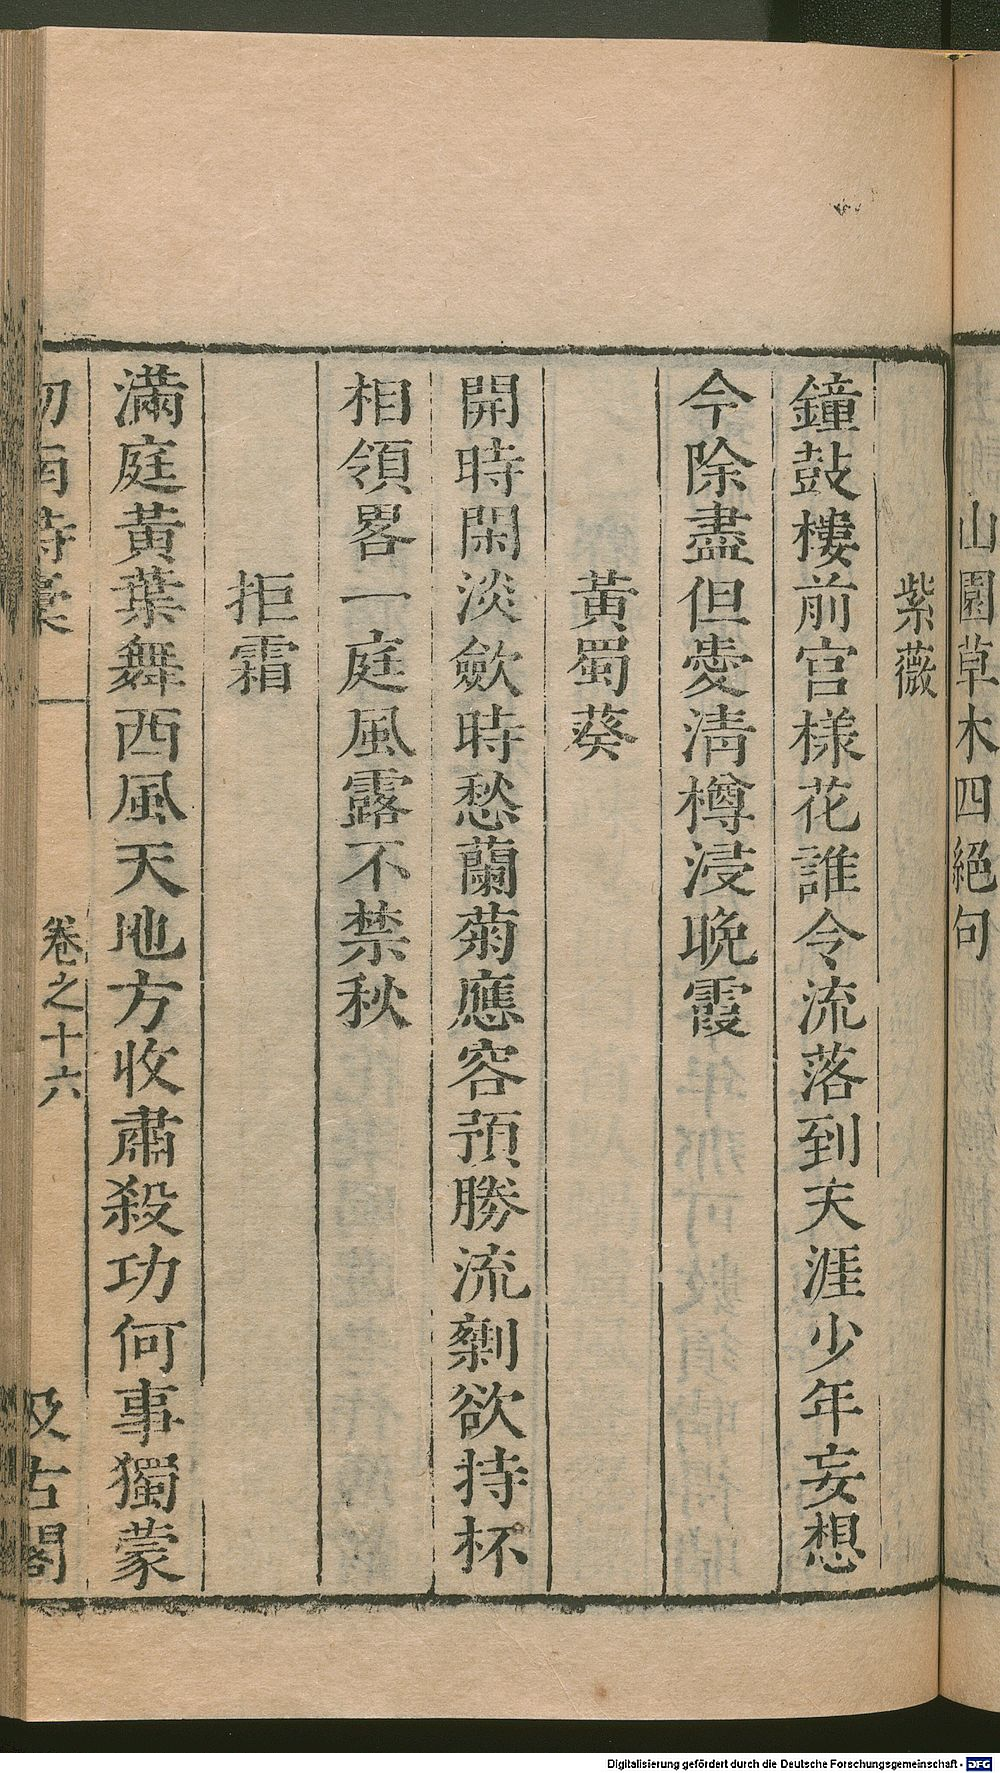 山園草木四絕句
紫薇
鐘鼓樓前宮樣花誰令流落到天涯少年妄想
今除盡但愛清樽浸晚霞
黃蜀葵
開時閑淡歛時愁蘭菊應容預勝流剩欲持杯
相領畧一庭風露不禁秋
拒霜
滿庭黃葉舞西風天地方收肅殺功何事獨蒙
劒南詩稾
卷之十六
汲古閣
Digitalisierung gefördert durch die Deutsche Forschungsgemeinschaft - DFG